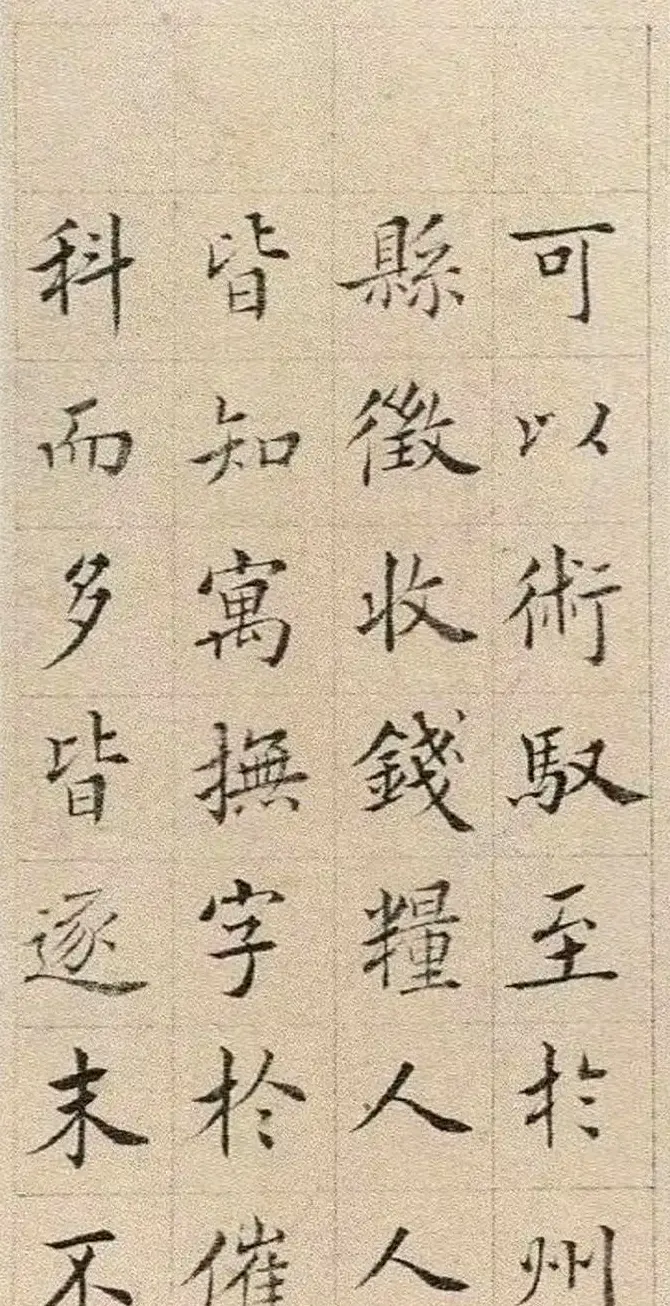 可以術馭至於州
縣徵收錢糧人人
皆知寓撫字於催
科而多皆逐末不